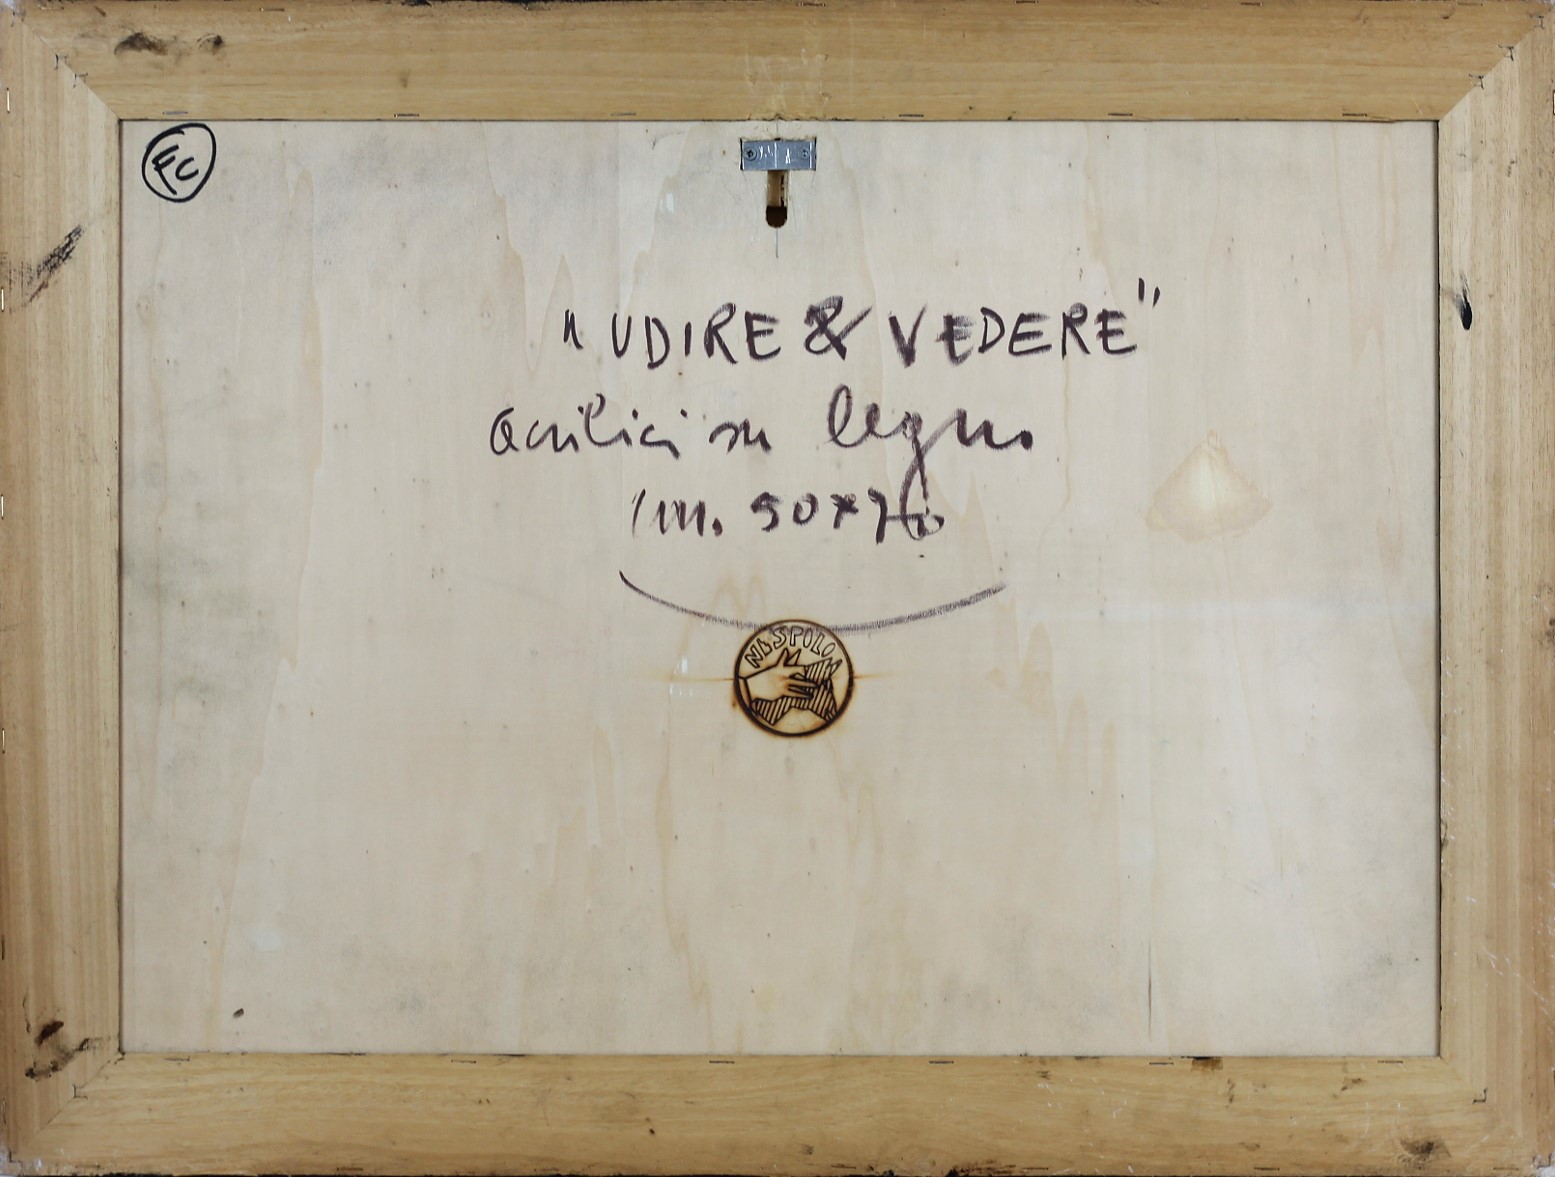 FC
"UDIRE & VEDERE"
acrilici su legno
cm. 50x70
NESPOLO